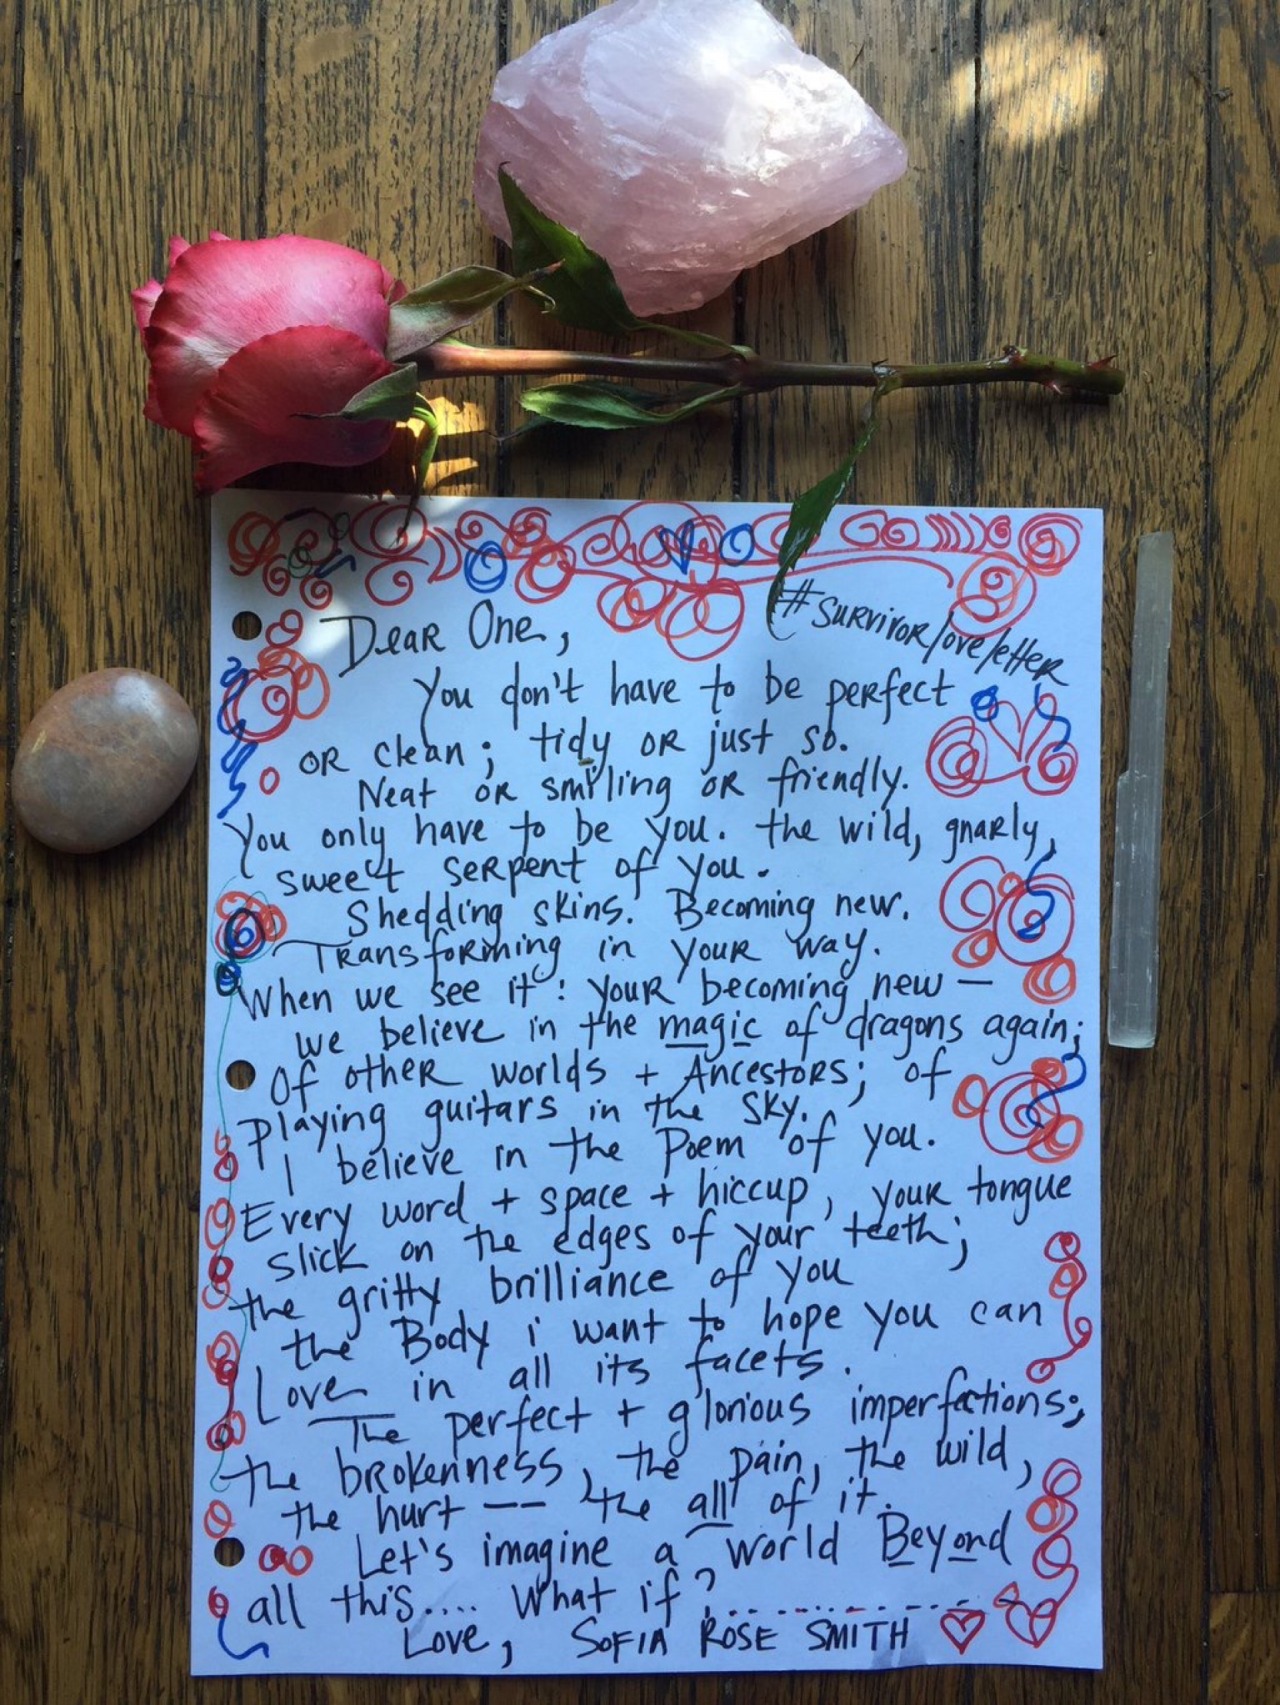 Dear One,
#SURVIVORloveletter
You don't have to be perfect
or clean; tidy or just so.
Neat or smiling or friendly.
You only have to be you. the wild, gnarly,
sweet serpent of you.
Shedding skins. Becoming new.
Transforming in your way.
When we see it: your becoming new —
we believe in the magic of dragons again;
Of other worlds + Ancestors; of
playing guitars in the sky.
I believe in the Poem of you.
Every word + space + hiccup, your tongue
slick on the edges of your teeth;
the gritty brilliance of you
the Body i want to hope you can
Love in all its facets.
The perfect + glorious imperfections;
the brokenness, the pain, the wild,
the hurt –– the all of it.
Let's imagine a world Beyond
all this.... What if?..............
Love, SOFIA ROSE SMITH